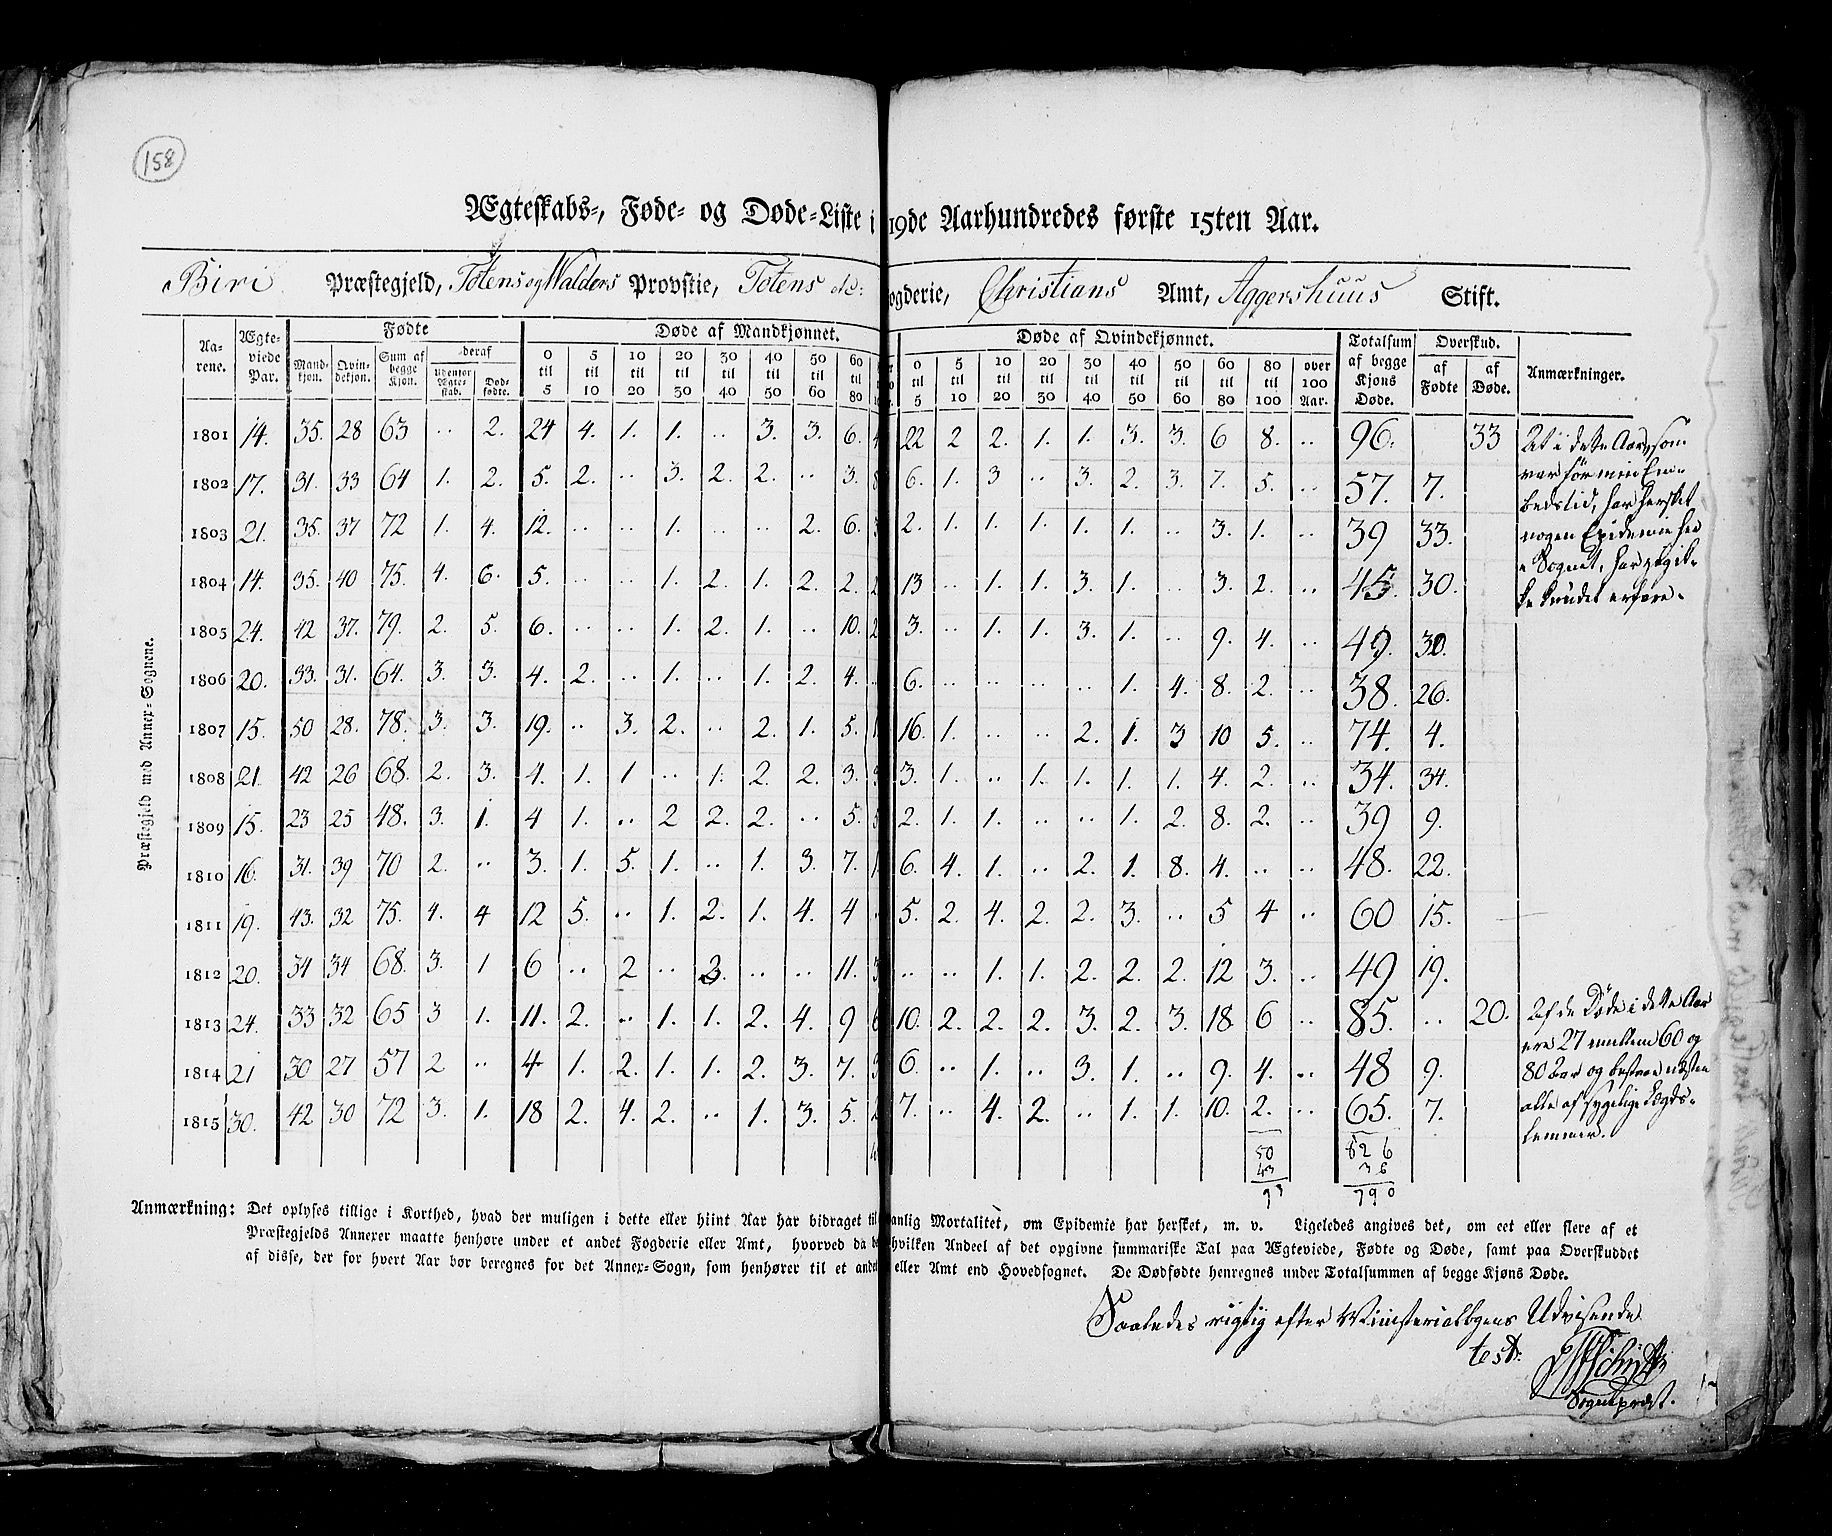 158
Ægteskabs-, Føde- og Døde-Liste i 19de Aarhundredes første 15ten Aar.
Biri Præstegjeld, Totens og Walders Provstie, Totens ogderie, Christians Amt, Aggershuus Stift.
Præstegjeld med Annex-Sognene.
Aarene. Ægteviede Par. Fødte Døde af Mandkjønnet. Døde af Qvindekjønnet. Totalsum af begge Kjøns Døde. Overskud. Anmærkninger.
Mandkjøn. Qvindekjøn. Sum af begge Kjøn. deraf udenfor Ægteskab. Dødfødte. 0 til 5 5 til 10 10 til 20 20 til 30 30 til 40 40 til 50 50 til 60 60 til 80 0 til 5 5 til 10 10 til 20 20 til 30 30 til 40 40 til 50 50 til 60 60 til 80 80 til 100 over 100 Aar. af Fødte af Døde.
1801 14. 35. 28 63 .. 2. 24 4. 1. 1. .. 3. 3. 6. 4 22 2 2. 1. 1. 3. 3. 6 8. .. 96. 33 At i dette Aar, som
1802 17. 31. 33 64 1. 2. 5. 2. .. 3. 2. 2. .. 3. 8 6. 1. 3 .. 3. 2. 3. 7. 5. .. 57. 7. var før min Em-
bedstid, har hersket
1803 21. 35. 37 72 1. 4. 12. .. .. 1. .. .. 2. 6. 3 2. 1. 1. 1. 1. 1. .. 3. 1. .. 39 33. nogen Epidemie her
1804 14. 35. 40 75. 4. 6. 5. .. .. 1. 2. 1. 2. 2. 2 13 .. 1. 1. 3. 1. 3. 2. .. 45. 30. i Sognet, har jeg ik-
ke kundet erfare.
1805 24. 42 37. 79. 2. 5. 6. .. .. 1. 2. 1. .. 10. 2 3. .. 1. 1. 3. 1. .. 9. 4. .. 49. 30.
1806 20. 33. 31. 64. 3. 3. 4. 2. .. 1. .. 1. 2. 4. .. 6. .. .. .. .. 1. 4. 8. 2. .. 38. 26.
1807 15. 50 28. 78. 3. 3. 19. .. 3. 2. .. 2. 1. 5. 1 16. 1. .. .. 2. 1. 3 10 5. .. 74. 4.
1808 21. 42 26 68. 2. 3. 4. 1. 1 .. 1. 2. 2. 3. 3 3. 1. .. 1. 1. 1. 1. 4. 2. .. 34. 34.
1809 15. 23 25 48. 3. 1. 4 1. .. 2 2. 2. .. 5. 5 2. 1. 1. .. .. 1. 2. 8. 2. .. 39 9.
1810 16. 31. 39 70 2. .. 3. 1. 5. 1. .. 1. 3. 7. 1 6. 4. 1. .. 2. 1. 8. 4. .. .. 48. 22.
1811 19. 43. 32 75. 4. 4 12 5. .. 1. 2. 1. 4. 4 .. 5. 2. 4. 2. 2. 3. .. 5 4 .. 60 15.
1812 20. 34 34 68. 3. 1 6 .. 2 .. 3. .. .. 11. 3 .. .. 1. 1. 2. 2. 2. 12 3. .. 49 19.
1813 24. 33 32 65 3 1. 11. 2. .. 1. 1. 2. 4. 9 6 10. 2. 2. 2. 3. 2. 3. 18 6 .. 85. .. 20. Af de Døde i dette Aar
ere 27 mellem 60 og
1814 21 30 27 57 2 .. 4 1. 2. 1. 1. 2. 3. 7. 3 6. .. 1. .. 3. 1. .. 9. 4. .. 48 9. 80 Aar og bestaae næsten
1815 30. 42 30 72 3. 1. 18 2. 4. 2. .. 1. 3. 5. 2 7. .. 4. 2. .. 1. 1. 10. 2. .. 65. 7. alle af sygelige Lægds-
lemmer.
50 626
43
93 790
Anmærkning: Det oplyses tillige i Korthed, hvad der muligen i dette eller hiint Aar har bidraget til anlig Mortalitet, om Epidemie har hersket, m. v. Ligeledes angives det, om eet eller flere af et
Præstegjelds Annexer maatte henhøre under et andet Fogderie eller Amt, hvorved da be hvilken Andeel af det opgivne summariske Tal paa Ægteviede, Fødte og Døde, samt paa Overskuddet
af disse, der for hvert Aar bør beregnes for det Annex-Sogn, som henhører til et andet eller Amt end Hovedsognet. De Dødfødte henregnes under Totalsummen af begge Kjøns Døde.
Saaledes rigtig efter Ministerialbogens Udvisende
test:
Sognepræst.